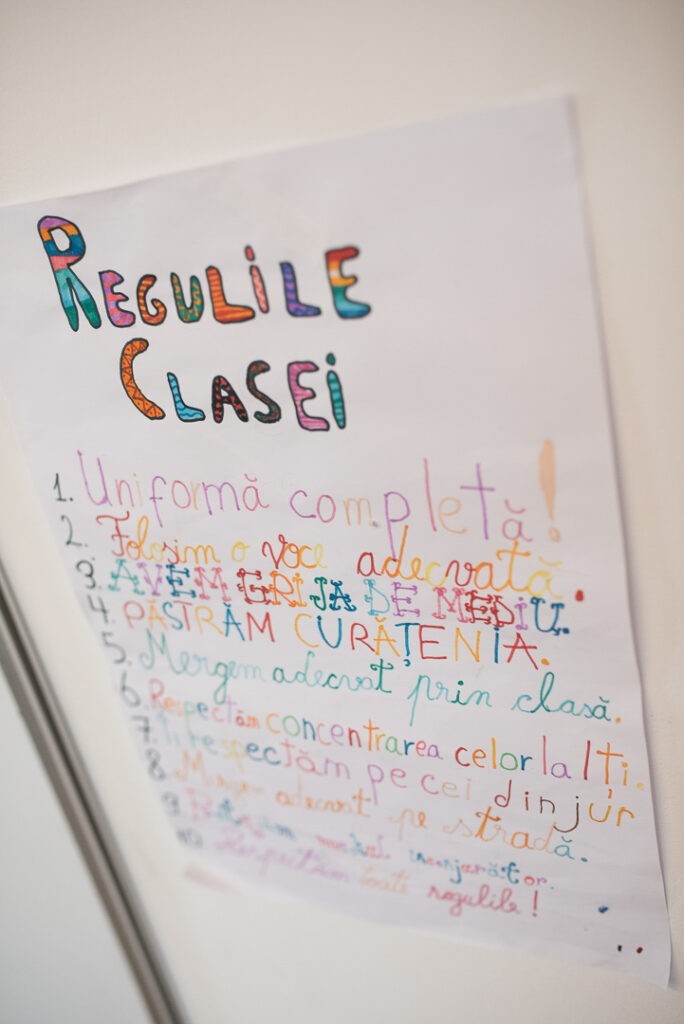 REGULILE
CLASEI
1. Uniformă completă!
2. Folosim o voce adecvată.
3. AVEM GRIJA DE MEDIU.
4. PĂSTRĂM CURĂȚENIA.
5. Mergem adecvat prin clasă.
6. Respectăm concentrarea celor la lți.
7. Îi respectăm pe cei din jur
8. Mergem adecvat pe stradă.
9. mediul inconjurător.
10. Respectăm toate regulile!